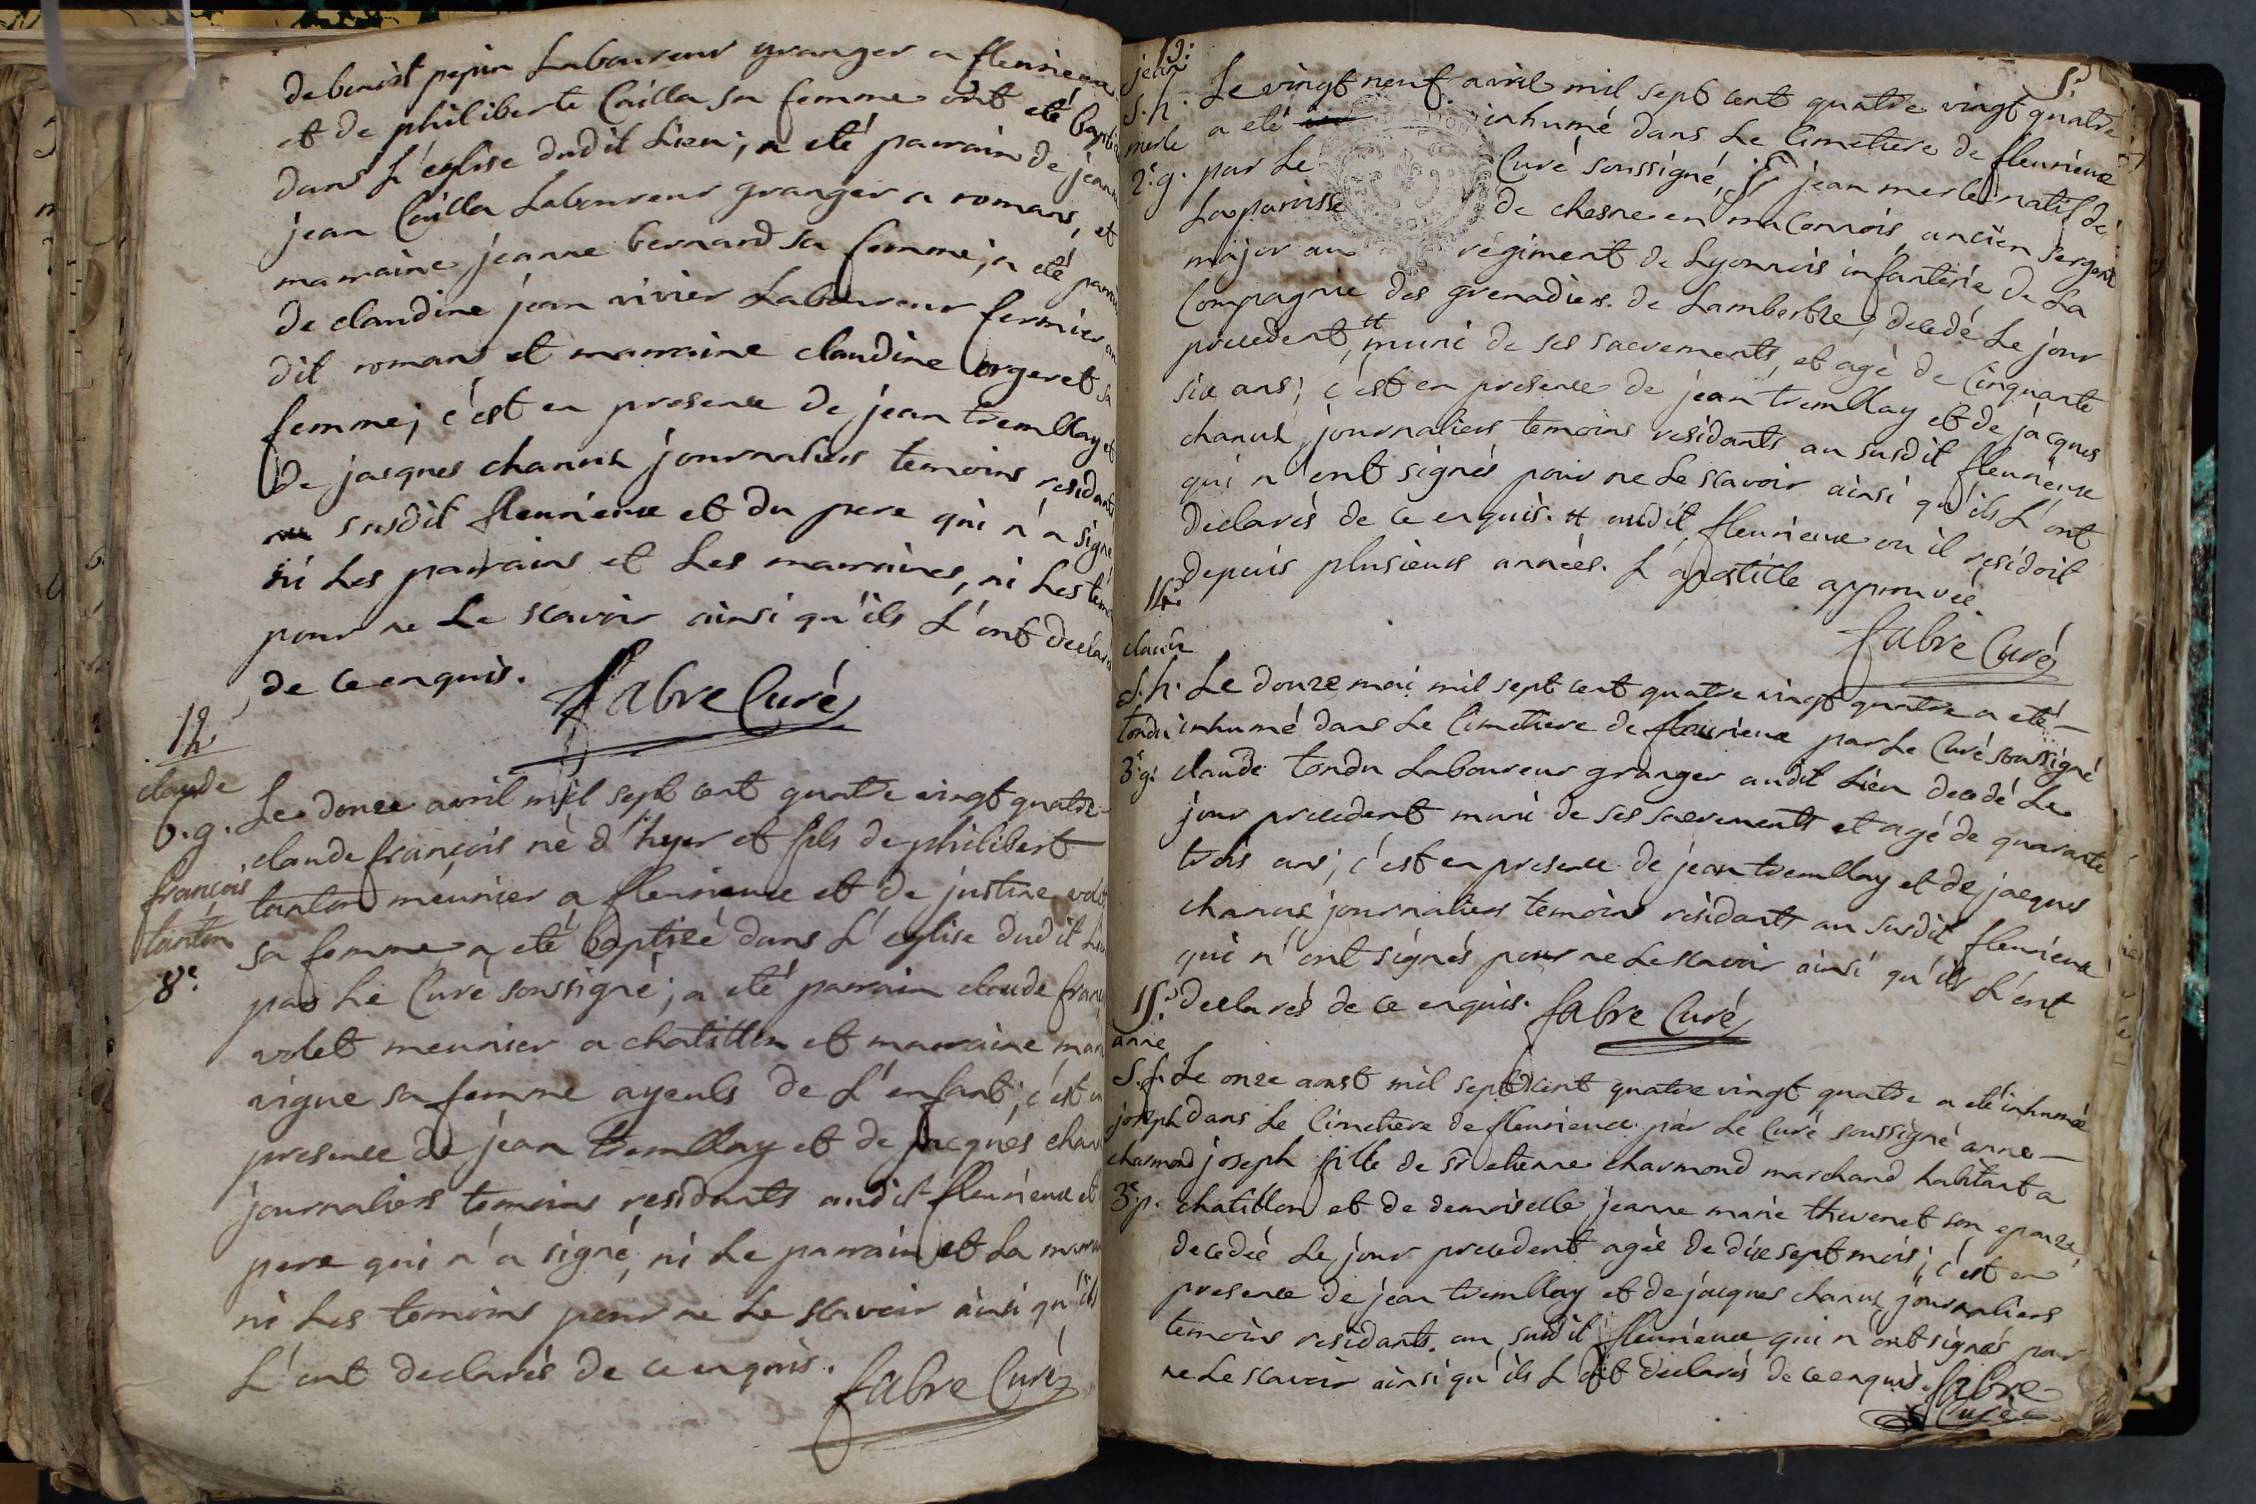 de benoist pepin Laboureur granger a fleurieux
et de philiberte Cailla sa femme ont eté
dans L'eglise dudit Lieu; a eté parrain de jeanne
jean Cailla Laboureur granger a romans, et
marraine jeanne bernard sa femme; a eté
de claudine jean vivier Laboureur fermier au
dit romans et marraine claudine orgeret sa
femme; c'est en presence de jean tremblay et
de jacques chanux journaliers temoins residants
au susdit fleurieux et du pere qui n'a signé
ni Les parrains et Les marraines, ni Les
pour ne Le scavoir ainsi qu'ils L'ont
de ce enquis. fabre Curé
12
claude
b. g.
françois
tanton
8e.
Le douze avril mil sept cent quatre vingt quatre
claude françois né d'hyer et fils de philibert
tanton meunier a fleurieux et de justine
sa femme a eté baptizé dans L'eglise dudit
par Le Curé soussigné; a eté parrain claude
volet meunier a chatillon et marraine
vigne sa femme ayeuls de L'enfant; c'est en
presence de jean tremblay et de jacques
journaliers temoins residants audit fleurieux et
pere qui n'a signé, ni Le parrain et La
ni Les temoins pour ne Le scavoir ainsi qu'ils
L'ont declarés de ce enquis. fabre Curé
5.
13.
jean
s. h.
merle
2e. g.
Le vingt neuf avril mil sept cent quatre vingt quatre
a eté inhumé dans Le Cimetiere de fleurieux
par Le Curé soussigné, Sr jean merle natif de
La paroisse de chesne en maconnois, ancien sergent
major au regiment de Lyonnois infanterie de La
Compagnie des grenadiers de Lambertze, decedé Le jour
precedent, # muni de ses sacrements, et agé de Cinquante
six ans; c'est en presence de jean tremblay et de jacques
chanux, journaliers temoins residants au susdit fleurieux
qui n'ont signés pour ne Le scavoir ainsi qu'ils L'ont
declarés de ce enquis. # audit fleurieux ou il residoit
depuis plusieurs années. L'apostille approuvée.
fabre Curé
14.
claude
s. h.
tondu
3e. g.
Le douze mai mil sept cent quatre vingt quatre a eté
inhumé dans Le Cimetiere de fleurieux par Le Curé soussigné
claude tondu Laboureur granger audit Lieu decedé Le
jour precedent muni de ses sacrements et agé de quarante
trois ans; c'est en presence de jean tremblay et de jacques
chanux journaliers temoins residants au susdit fleurieux
qui n'ont signés pour ne Le scavoir ainsi qu'ils L'ont
declarés de ce enquis. fabre Curé
15.
anne
s. f.
joseph
charmond
3e. p.
Le onze aoust mil sept cent quatre vingt quatre a eté inhumée
dans Le Cimetiere de fleurieux par Le Curé soussigné anne
joseph fille de Sr etienne charmond marchand habitant a
chatillon et de demoiselle jeanne marie thevenet son epouze,
decedée Le jour precedent agée de dix sept mois; c'est en
presence de jean tremblay et de jacques chanux journaliers
temoins residants au susdit fleurieux qui n'ont signés pour
ne Le scavoir ainsi qu'ils L'ont declarés de ce enquis. fabre
Curé